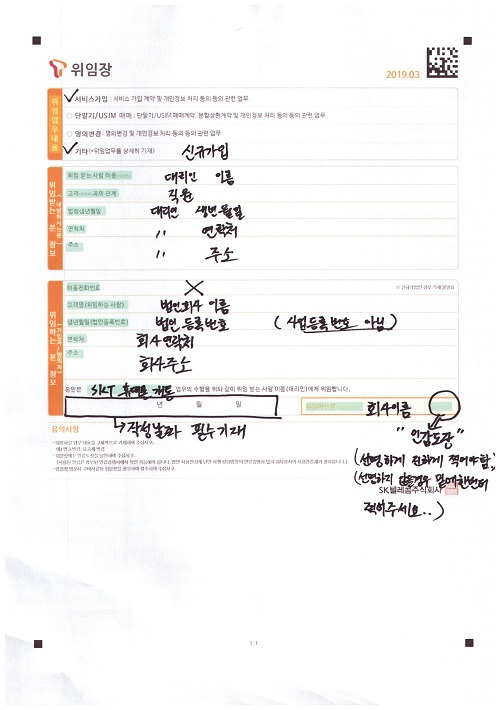 위임장
2019.03
위임업무내용
✓ 서비스가입 : 서비스 가입 계약 및 개인정보 처리 동의 등의 관련 업무
○ 단말기/USIM 매매 : 단말기/USIM 매매계약, 분할상환계약 및 개인정보 처리 동의 등의 관련 업무
○ 명의변경 : 명의변경 및 개인정보 처리 동의 등의 관련 업무
✓ 기타 (*위임업무를 상세히 기재) 신규가입
위임받는 분 정보
위임 받는 사람 이름 대리인 이름
고객 과의 관계 직원
법정생년월일 대리인 생년월일
연락처 〃 연락처
주소 〃 주소
위임하는 분 정보
이동전화번호 ✕ ※ 신규가입인 경우 기재 불필요
고객명 (위임하는 사람) 법인회사 이름
생년월일 (법인등록번호) 법인 등록번호 (사업등록번호 아님)
연락처 회사연락처
주소 회사주소
본인은 SKT 휴대폰 개통 업무의 수행을 위와 같이 위임 받는 사람 이름(대리인)에게 위임합니다.
년 월 일
회사이름
↳ 작성날짜 필수기재
"인감도장"
유의사항
(선명하게 진하게 찍어야함,
(선명하지 않을경우 밑에한번더
SK텔레콤주식회사
찍어주세요..)
1-1